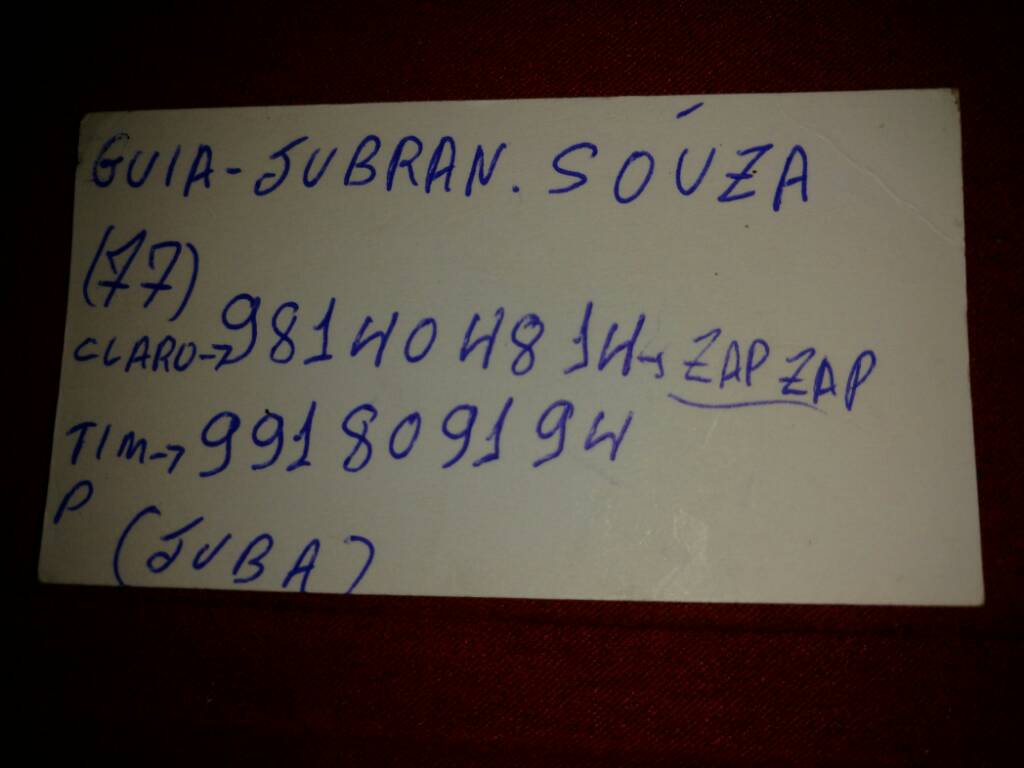 GUIA-JUBRAN. SOÚZA
(77)
CLARO→981404814→ ZAP ZAP
TIM→991809194
P
(JUBA)